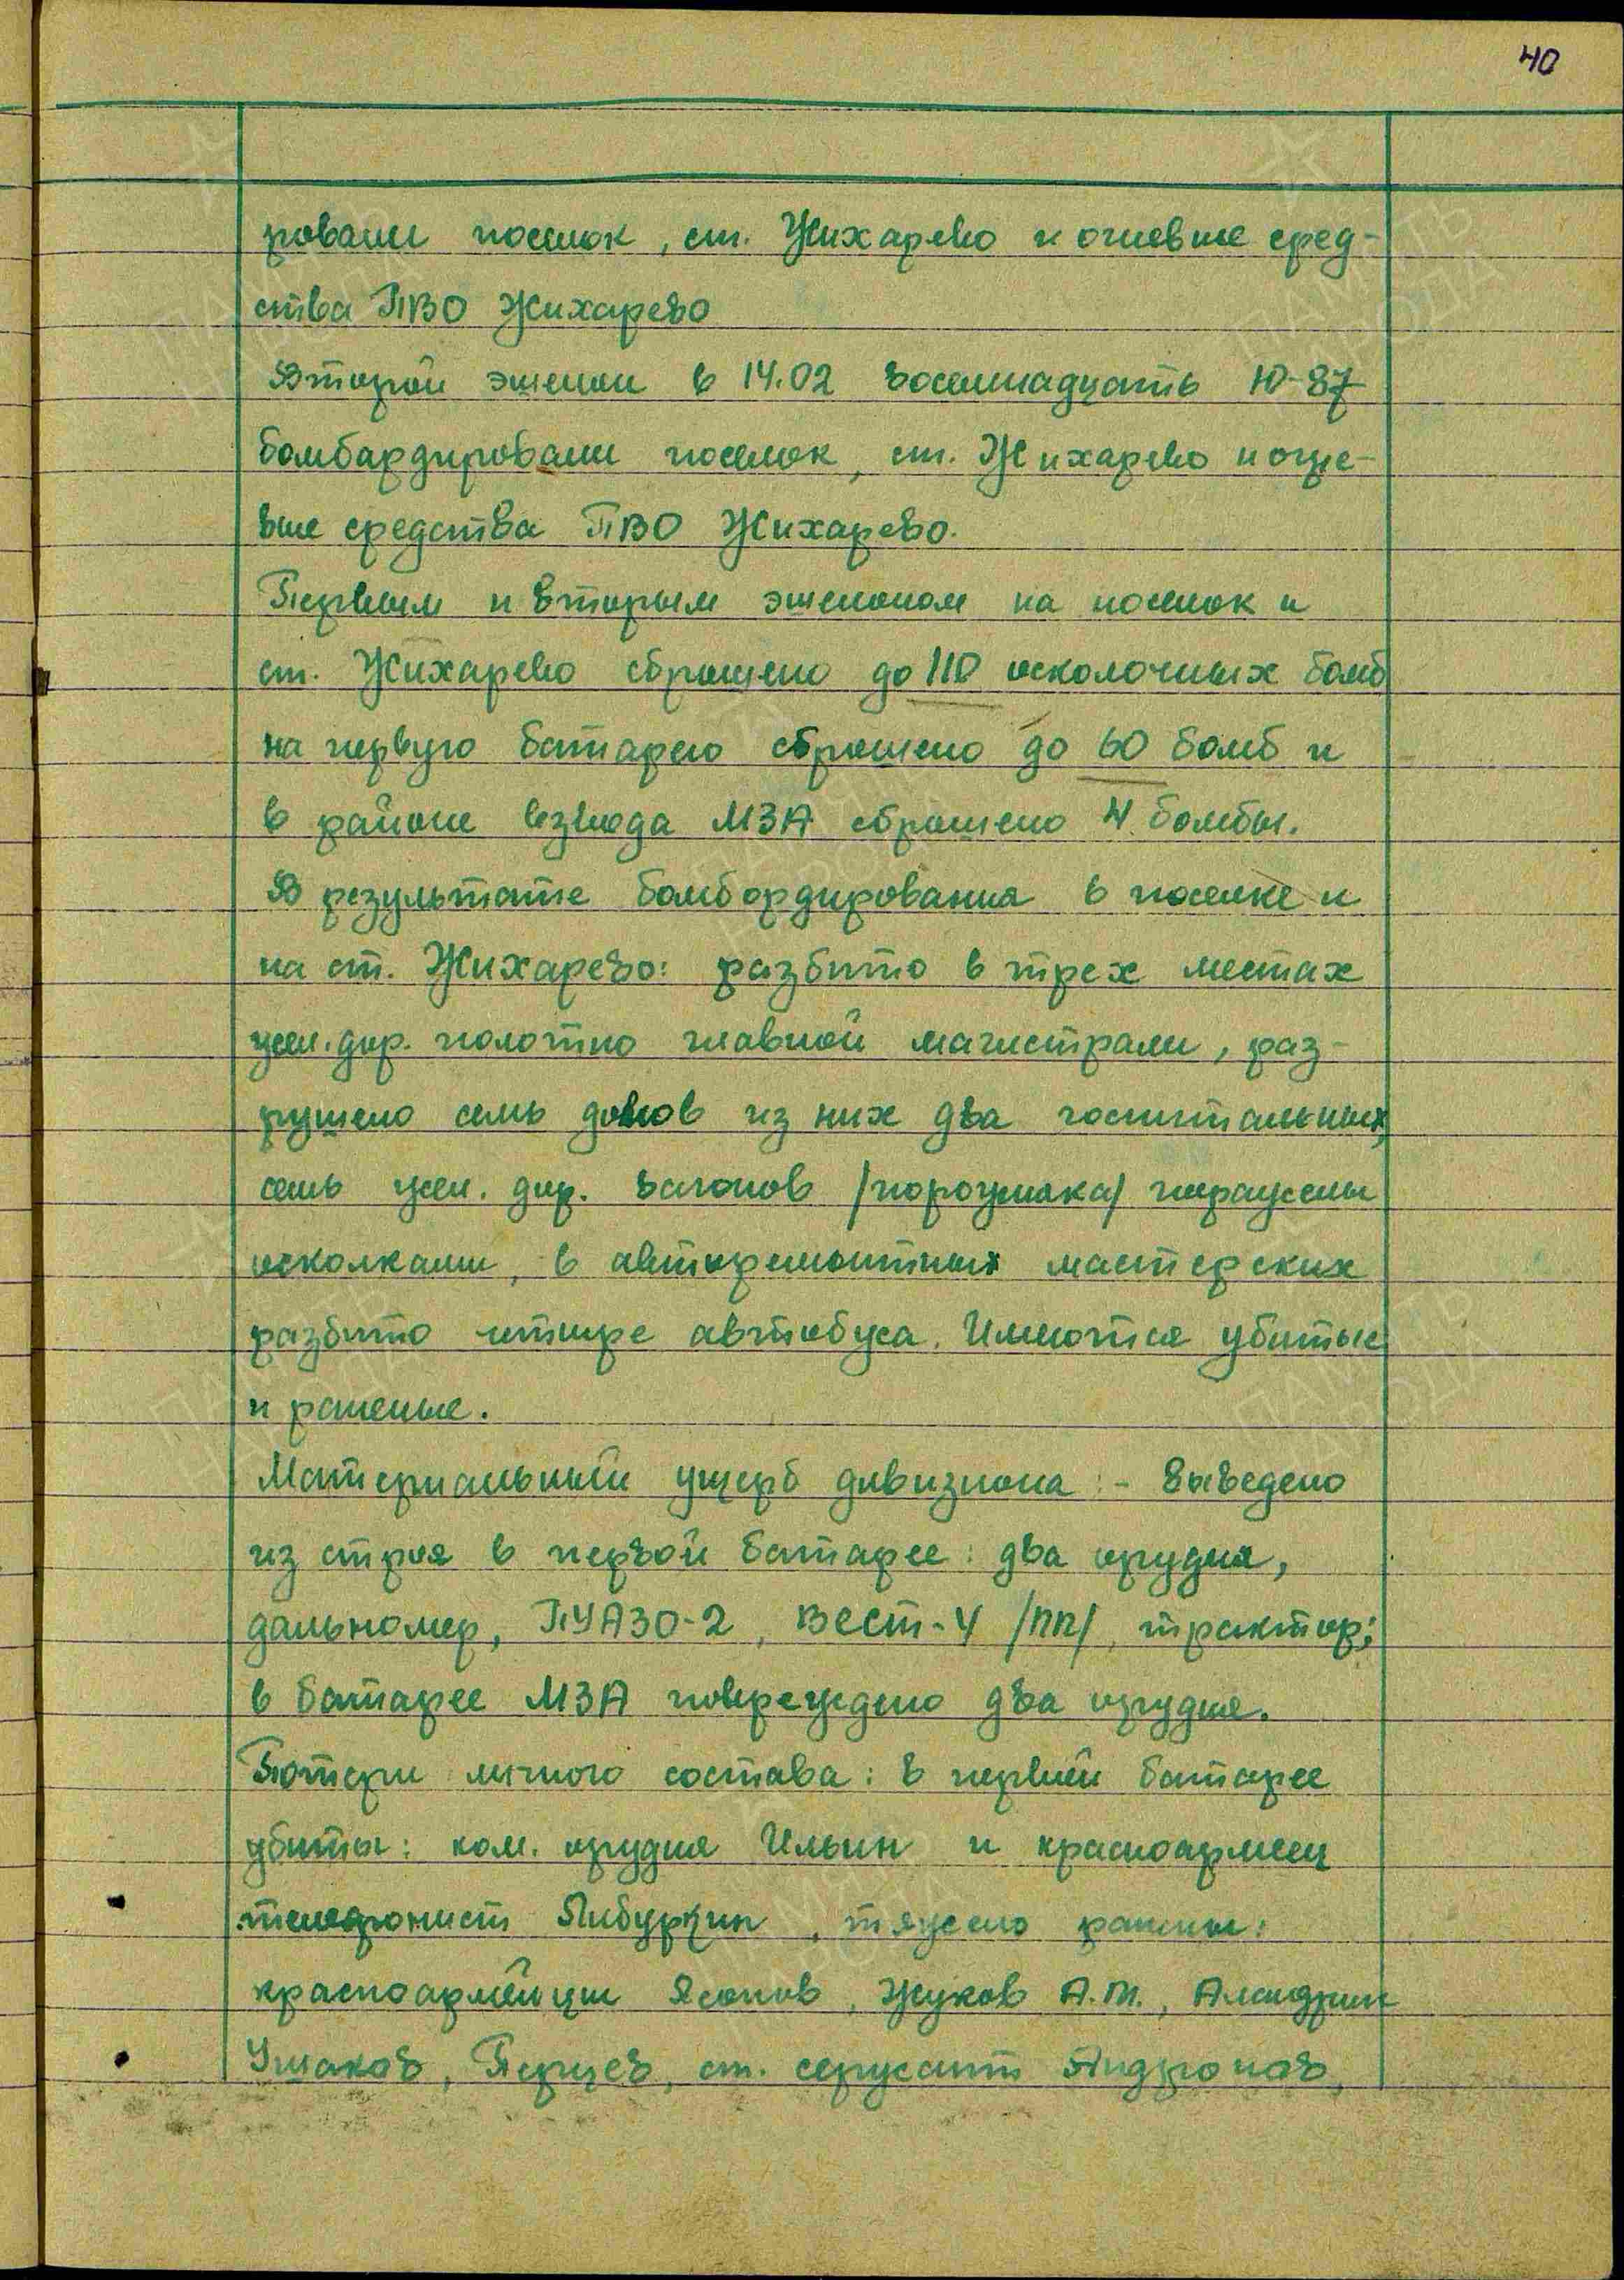 40
ровали поселок, ст. Жихарево и огневые сред-
ства ПВО Жихарево
Второй эшелон в 14.02 восемнадцать Ю-87
бомбардировали поселок, ст. Жихарево и огне-
вые средства ПВО Жихарево.
Первым и вторым эшелоном на поселок и
ст. Жихарево сброшено до 110 осколочных бомб
на первую батарею сброшено до 60 бомб и
в районе взвода МЗА сброшено 4 бомбы.
В результате бомбордирования в поселке и
на ст. Жихарево: разбито в трех местах
жел. дор. полотно главной магистрали, раз-
рушено семь домов из них два госпитальных,
семь жел. дор. вагонов /порожняка/ поражены
осколками, в авторемонтных мастерских
разбито четыре автобуса. Имеются убитые
и раненые.
Материальный ущерб дивизиона: - выведено
из строя в первой батарее: два орудия,
дальномер, ПУАЗО-2, Вест-4 /ПП/, трактор;
в батарее МЗА повреждено два орудия.
Потери личного состава: в первой батарее
убиты: ком. орудия Ильин и красноармеец
телефонист, тяжело ранены:
красноармейцы Жуков А.М.,
Ушаков, Перцев, ст. сержант Андронов,
ПАМЯТЬ
НАРОДА